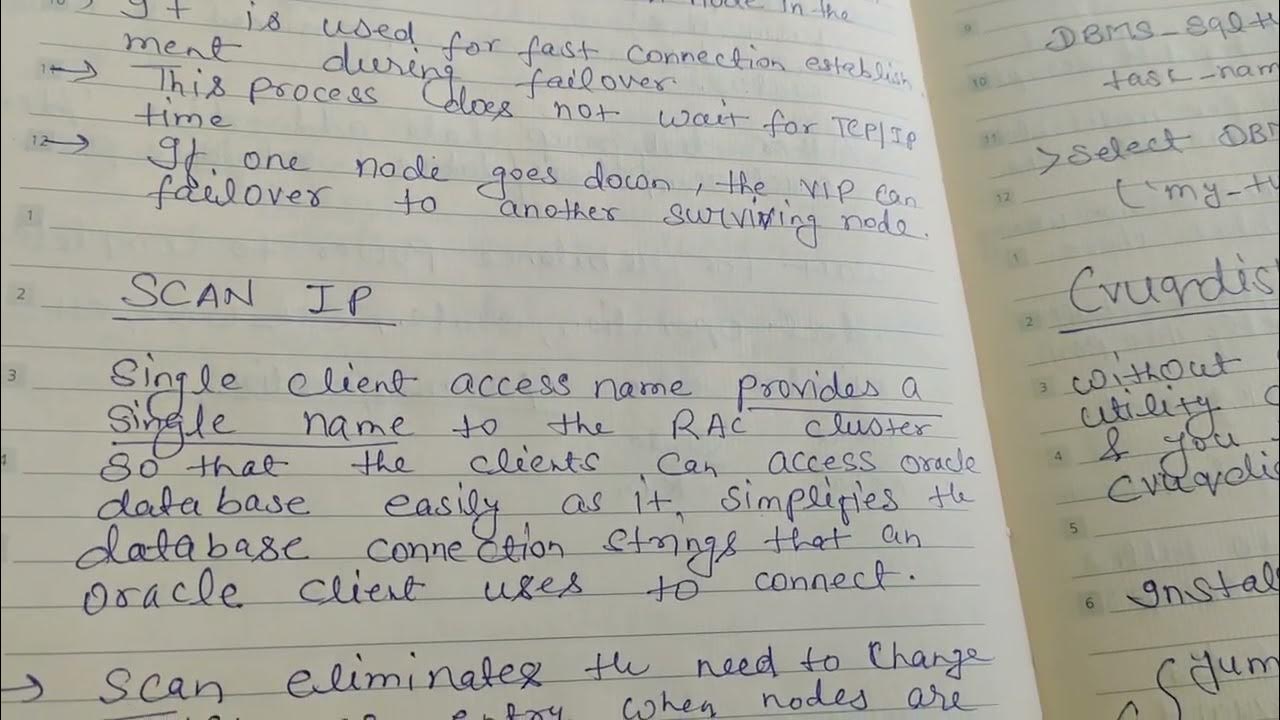 node in the
It is used for fast connection establish
ment during failover.
→ This process does not wait for TCP/IP
time
→ If one node goes down, the VIP can
failover to another surviving node.
SCAN IP
Single client access name provides a
single name to the RAC cluster
so that the clients can access oracle
database easily as it simplifies the
database connection strings that an
oracle client uses to connect.
→ Scan eliminates the need to change
entry when nodes are
9
DBMS_sqlt
10
task_nam
11
>select DBM
12
('my-t
1
Cvuqdis
2
3 without
utility
4 & you
cvuqdi
5
6 Instal
yum